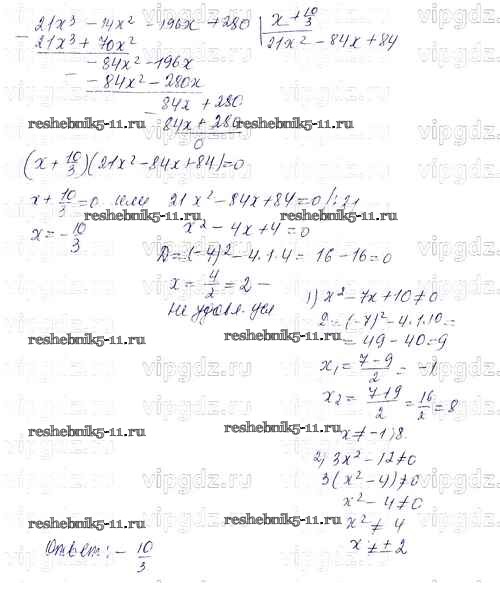 21x³ - 14x² - 196x + 280 | x + 10/3
21x³ + 70x² 21x² - 84x + 84
- 84x² - 196x
- 84x² - 280x
84x + 280
84x + 280
0
reshebnik5-11.ru reshebnik5-11.ru
(x + 10/3)(21x² - 84x + 84) = 0
x + 10/3 = 0 или 21x² - 84x + 84 = 0 /:21
reshebnik5-11.ru reshebnik5-11.ru
x = - 10/3 x² - 4x + 4 = 0
D = (-4)² - 4·1·4 = 16 - 16 = 0
x = 4/2 = 2 -
не удовл. усл
1) x² - 7x + 10 ≠ 0
D = (-7)² - 4·1·10 =
= 49 - 40 = 9
reshebnik5-11.ru reshebnik5-11.ru
x₁ = 7-9/2 = -1
x₂ = 7+9/2 = 16/2 = 8
reshebnik5-11.ru reshebnik5-11.ru
x ≠ -1; 8.
2) 3x² - 12 ≠ 0
3(x² - 4) ≠ 0
x² - 4 ≠ 0
reshebnik5-11.ru reshebnik5-11.ru
x² ≠ 4
x ≠ ± 2
Ответ: - 10/3
vipgdz.ru